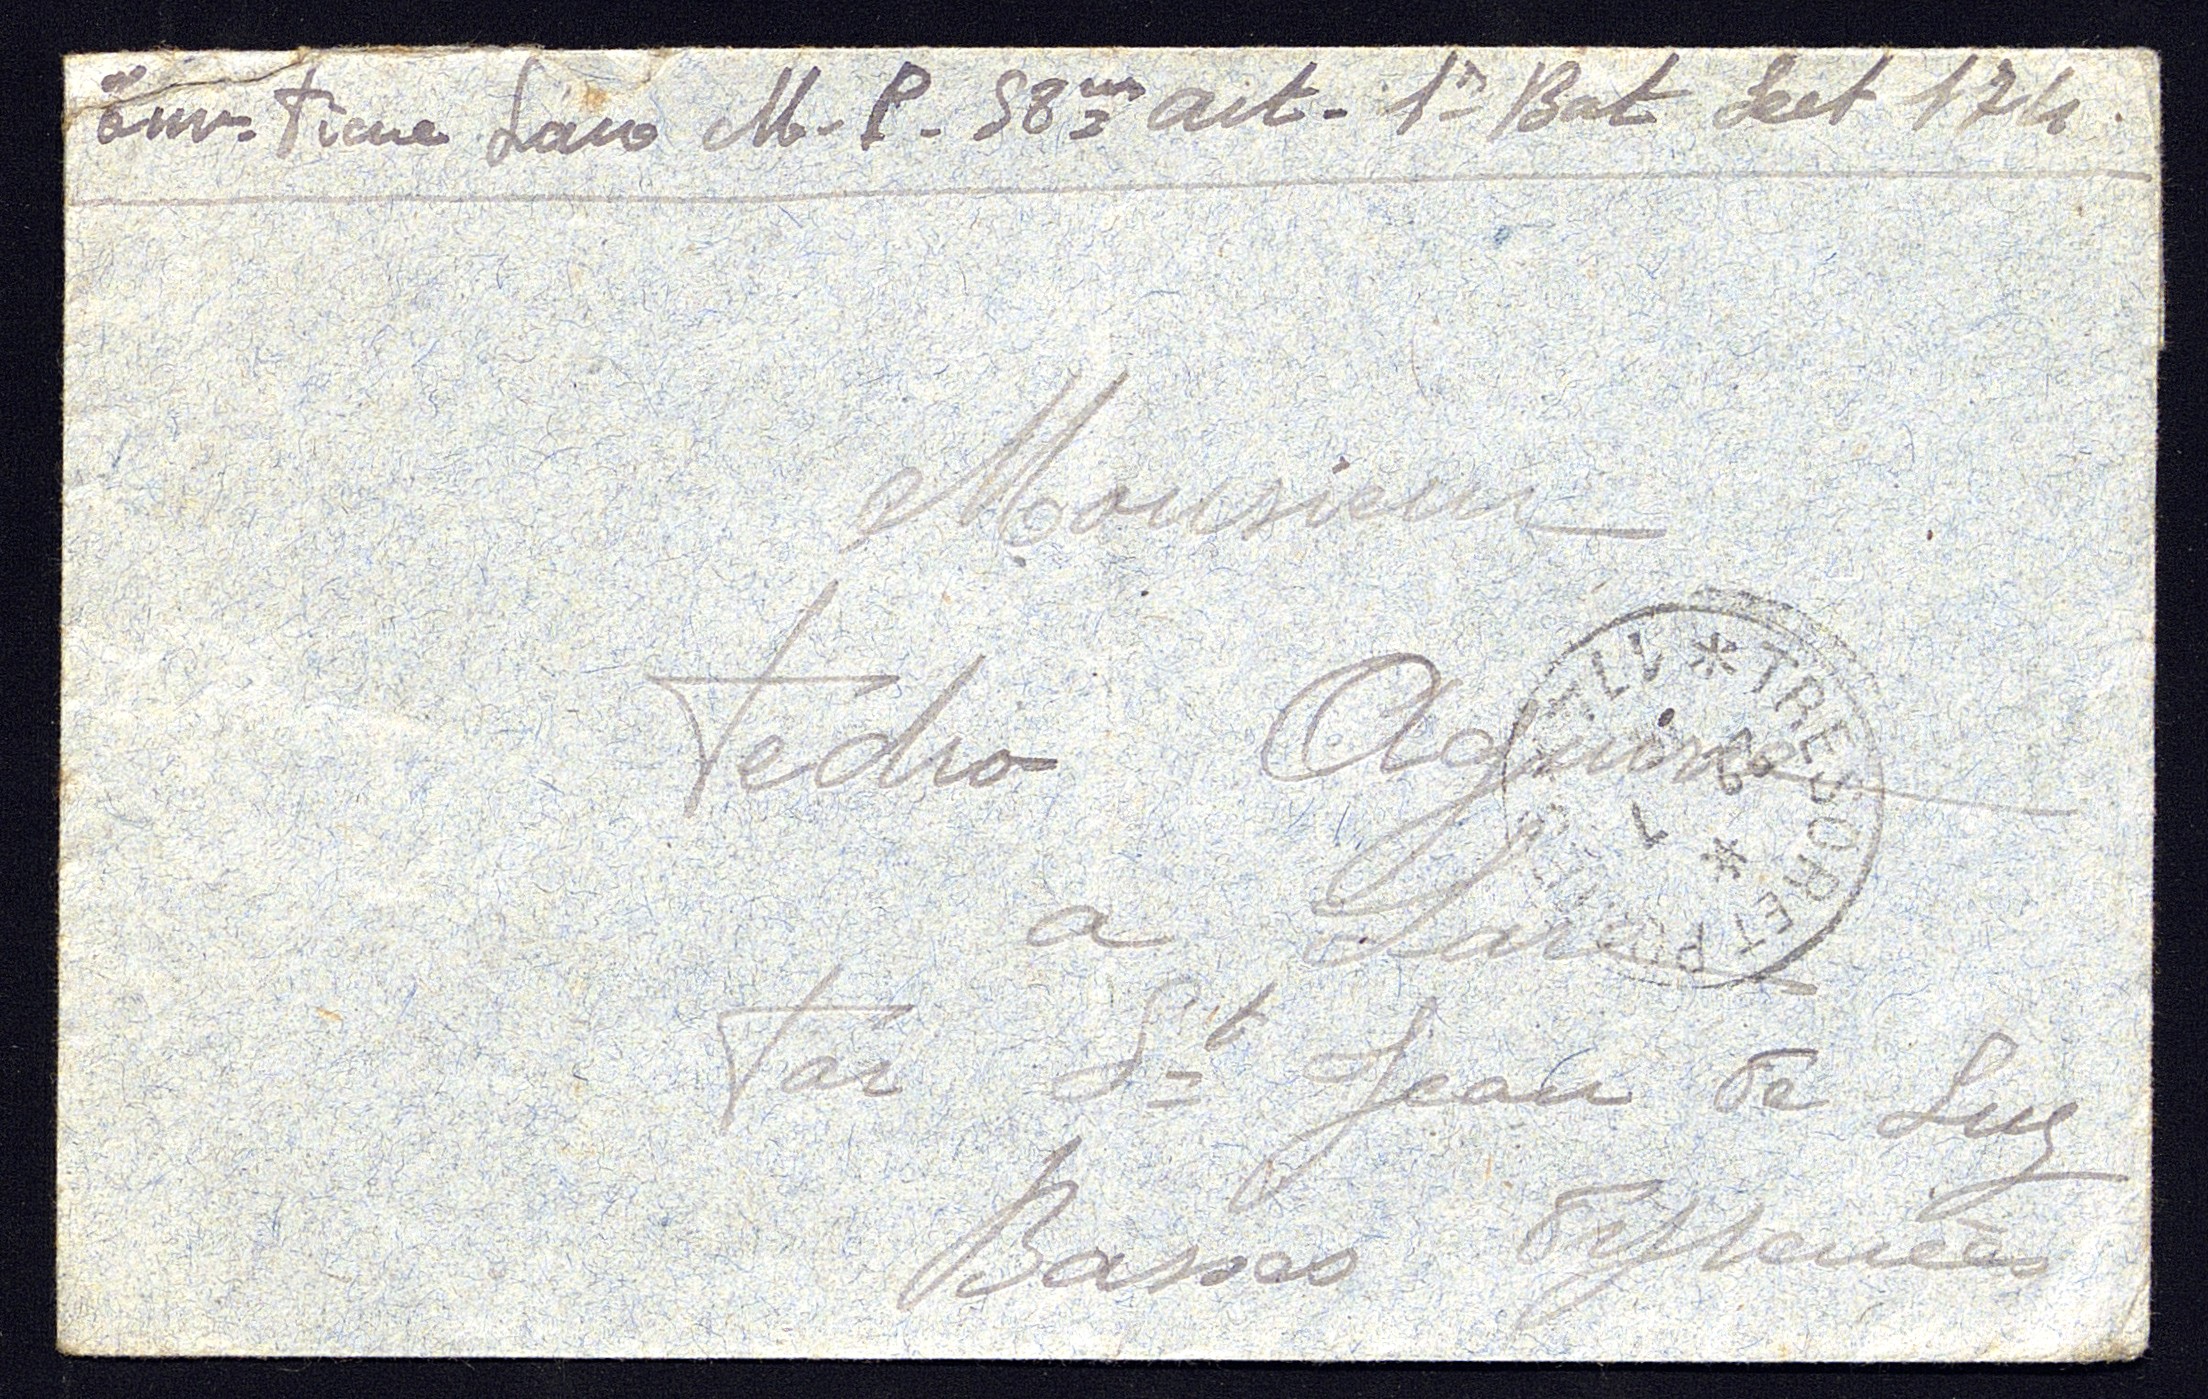 Env. M. P. 58me art - 1re Bat Sect 174.
Monsieur
Pédro Aguirre
a Sare
Par St Jean de Luz
Basses Pyrenées
* TRESOR ET POSTES * 174